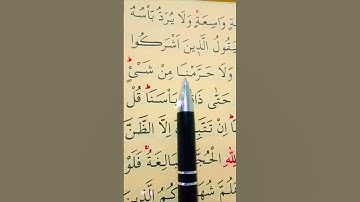 ةٍ وَاسِعَةٍ وَلَا يُرَدُّ بَأْسُهُ
يَقُولُ الَّذِينَ اَشْرَكُوا
وَلَا حَرَّمْنَا مِنْ شَيْءٍ
حَتّٰى ذَا بَأْسَنَا قُلْ
اِنْ تَتَّبِ اِلَّا الظَّنَّ
لِلّٰهِ الْحُجَّ بَالِغَةُ فَلَوْ
لُمَّ شُهَ كُمُ الَّذِينَ